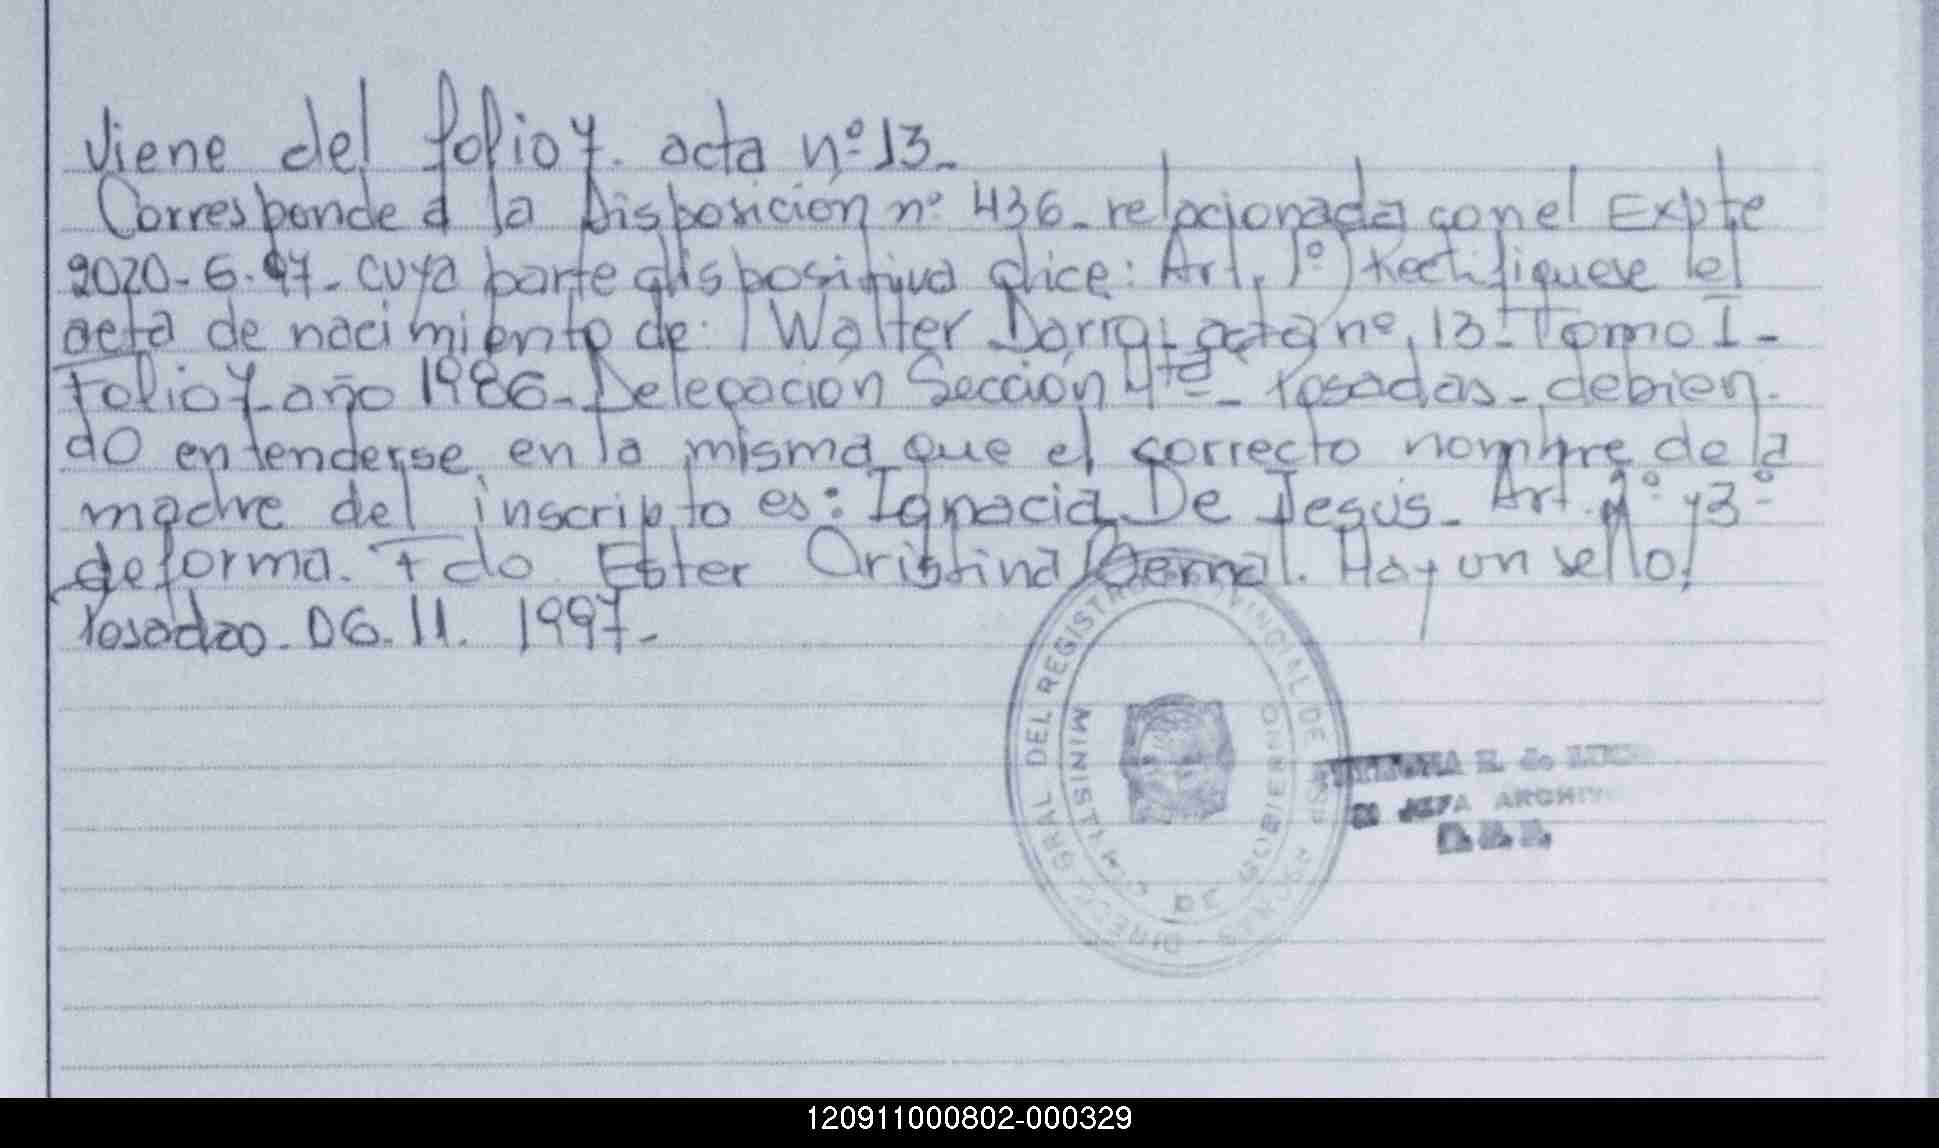 Viene del folio 7. acta nº 13.
Corresponde a la Disposición nº 436. relacionada con el Expte
2020-6.97. cuya parte dispositiva dice: Art. 1º) Rectifiquese el
acta de nacimiento de: Walter Dorra. acta nº 13. Tomo I-
Folio 7. año 1986. Delegación Sección 4ta. Posadas. debien-
do entenderse en la misma que el correcto nombre de la
madre del inscripto es: Ignacia De Jesús. Art. 2º y 3º
deforma. Fdo Ester Cristina Bernal. Hay un sello.
Posadas. 06.11. 1997.
DIREC. GRAL DEL REGISTRO PROVINCIAL DE
MINISTERIO DE GOBIERNO
JEFA ARCHIVO
120911000802-000329